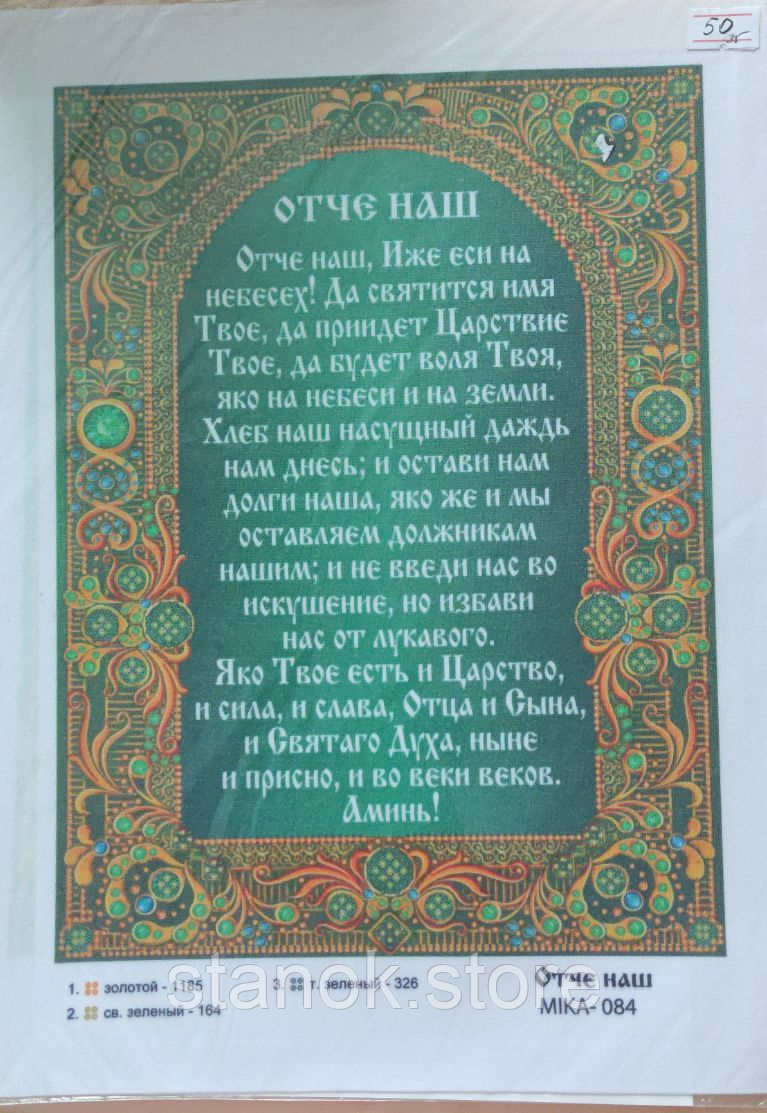 50
ОТЧЕ НАШ
Отче наш, Иже еси на
небесех! Да святится имя
Твое, да приидет Царствие
Твое, да будет воля Твоя,
яко на небеси и на земли.
Хлеб наш насущный даждь
нам днесь; и остави нам
долги наша, яко же и мы
оставляем должникам
нашим; и не введи нас во
искушение, но избави
нас от лукавого.
Яко Твое есть и Царство,
и сила, и слава, Отца и Сына,
и Святаго Духа, ныне
и присно, и во веки веков.
Аминь!
1. золотой - 1185
2. св. зеленый - 164
3. т. зеленый - 326
Отче наш
МІКА- 084
stanok.store